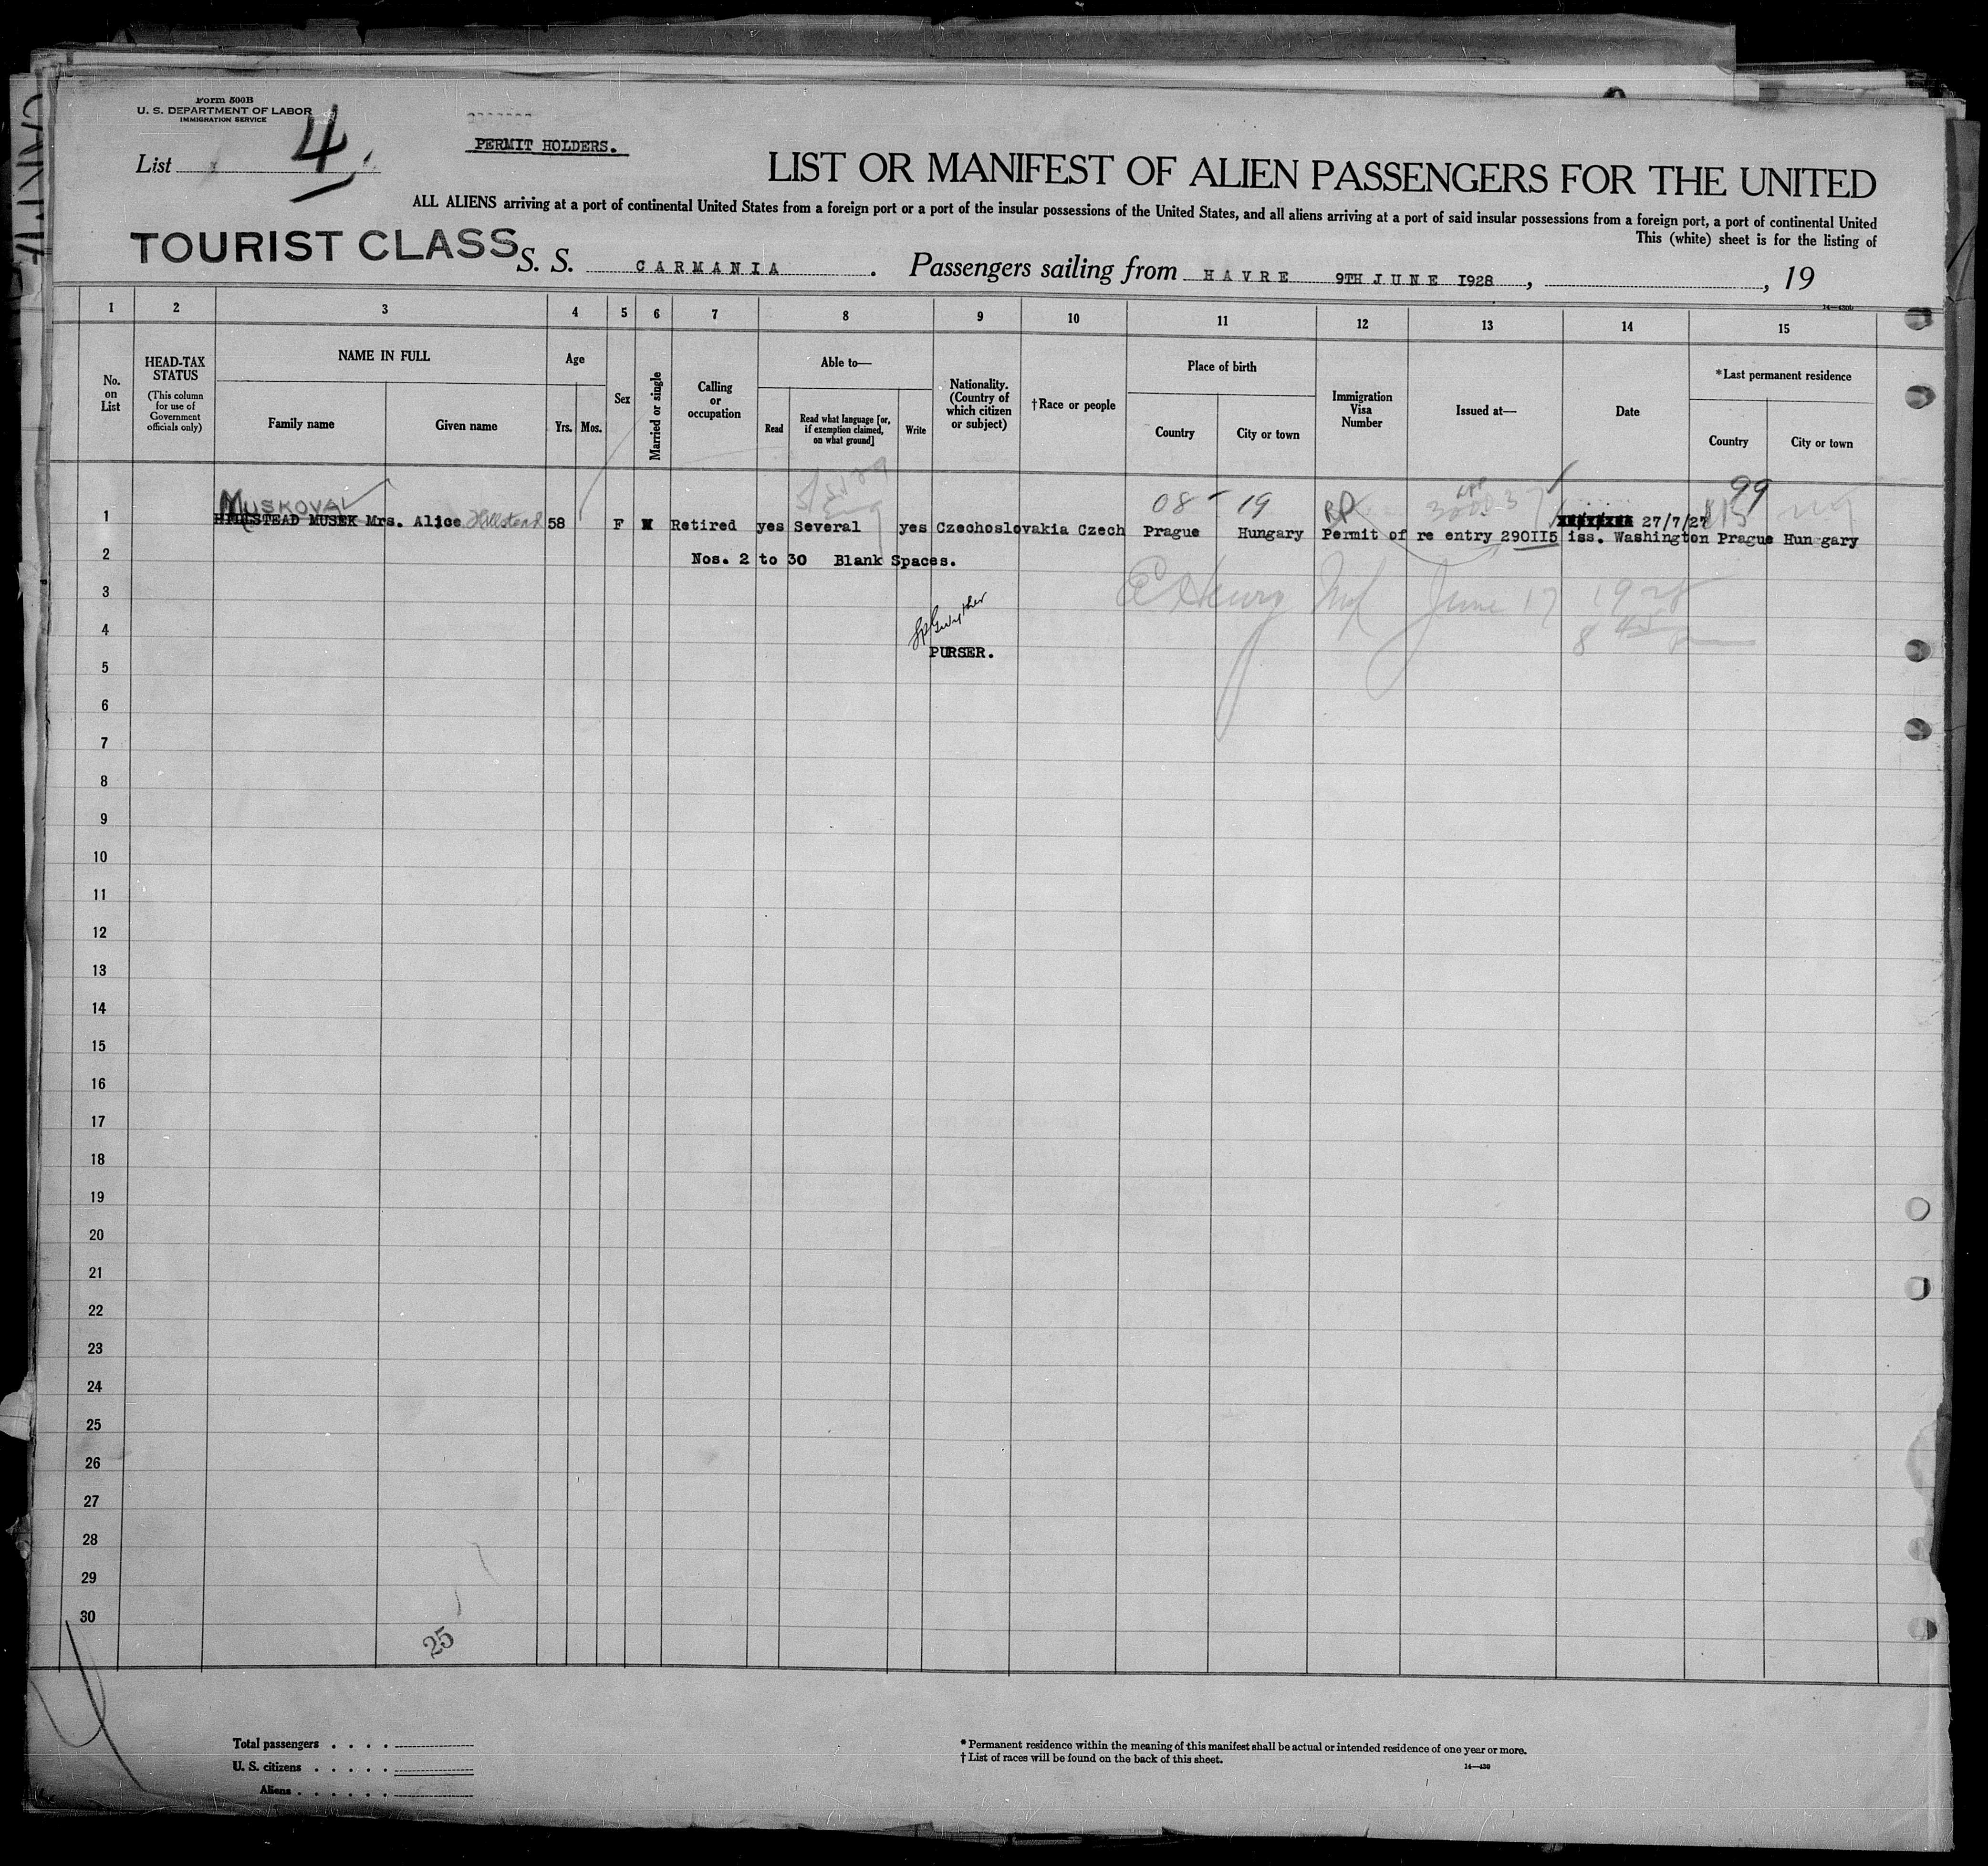 Form 500B
U. S. DEPARTMENT OF LABOR
IMMIGRATION SERVICE
List 4
PERMIT HOLDERS.
LIST OR MANIFEST OF ALIEN PASSENGERS FOR THE UNITED
ALL ALIENS arriving at a port of continental United States from a foreign port or a port of the insular possessions of the United States, and all aliens arriving at a port of said insular possessions from a foreign port, a port of continental United
This (white) sheet is for the listing of
TOURIST CLASS S. S. CARMANIA . Passengers sailing from HAVRE 9TH JUNE I928 , , 19
14—430b
1 2 3 4 5 6 7 8 9 10 11 12 13 14 15
No. on List
HEAD-TAX STATUS (This column for use of Government officials only)
NAME IN FULL
Family name
Given name
Age
Yrs.
Mos.
Sex
Married or single
Calling or occupation
Able to—
Read
Read what language [or, if exemption claimed, on what ground]
Write
Nationality. (Country of which citizen or subject)
†Race or people
Place of birth
Country
City or town
Immigration Visa Number
Issued at—
Date
*Last permanent residence
Country
City or town
MUSKOVAL 08 - 19 RP 99
1 HILLSTEAD MUSEK Mrs. Alice Hillstead 58 F M Retired yes Several yes Czechoslovakia Czech Prague Hungary Permit of re entry 290II5 iss. Washington 27/7/27 Prague Hungary
2 Nos. 2 to 30 Blank Spaces.
3 Henry June 17 1928
4
PURSER.
5
6
7
8
9
10
11
12
13
14
15
16
17
18
19
20
21
22
23
24
25
26
27
28
29
30
25
Total passengers . . . .
U. S. citizens . . . . .
Aliens . . . . . .
* Permanent residence within the meaning of this manifest shall be actual or intended residence of one year or more.
† List of races will be found on the back of this sheet.
14—430